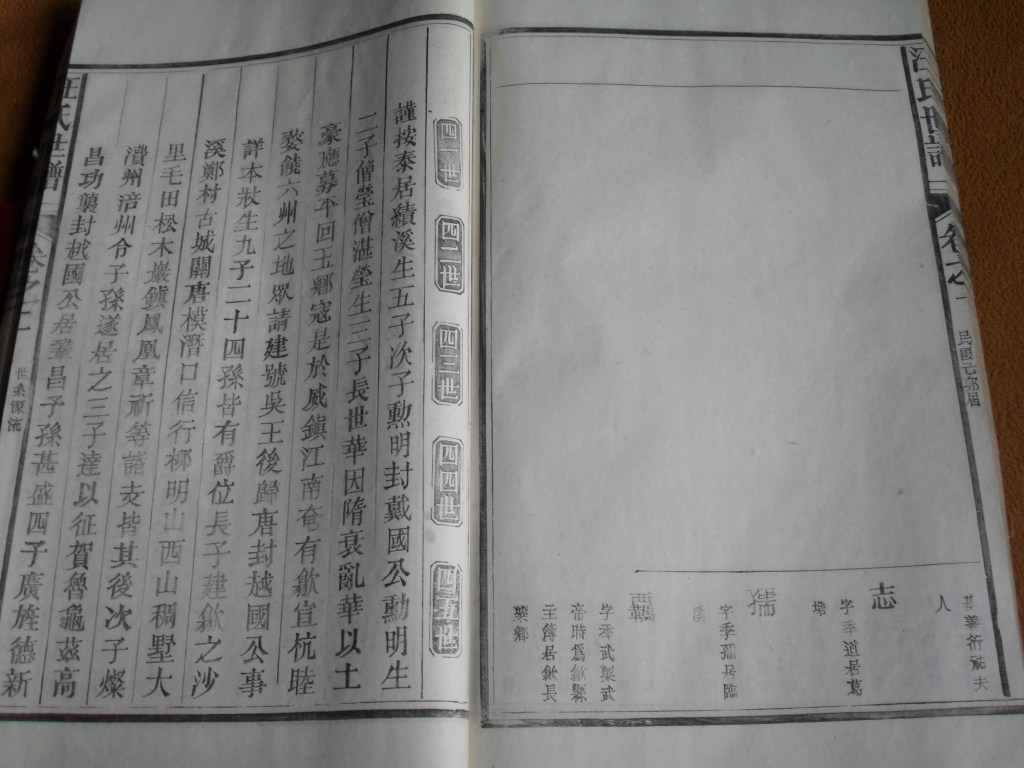 汪氏世譜
卷之一
民國己卯屆
人
志
字季道居葛
塘
孺
四一世 四二世 四三世 四四世 四五世
謹按泰居績溪生五子次子勲明封戴國公勲明生
二子僧瑩僧湛瑩生三子長世華因隋衰亂華以土
豪應募平回玉鄉寇是於威鎮江南奄有歙宣杭睦
婺饒六州之地眾請建號吳王後歸唐封越國公事
詳本狀生九子二十四孫皆有爵位長子建歙之沙
溪鄭村古城關唐模潛口信行栁明山西山稠墅大
里毛田松木壤鎮鳳凰章祈等諸支皆其後次子燦
瀆州涪州令子孫遂居之三子達以征賀魯龜茲高
昌功襲封越國公居鞏昌子孫甚盛四子廣旌德新
汪氏世譜
卷之二
世系源流